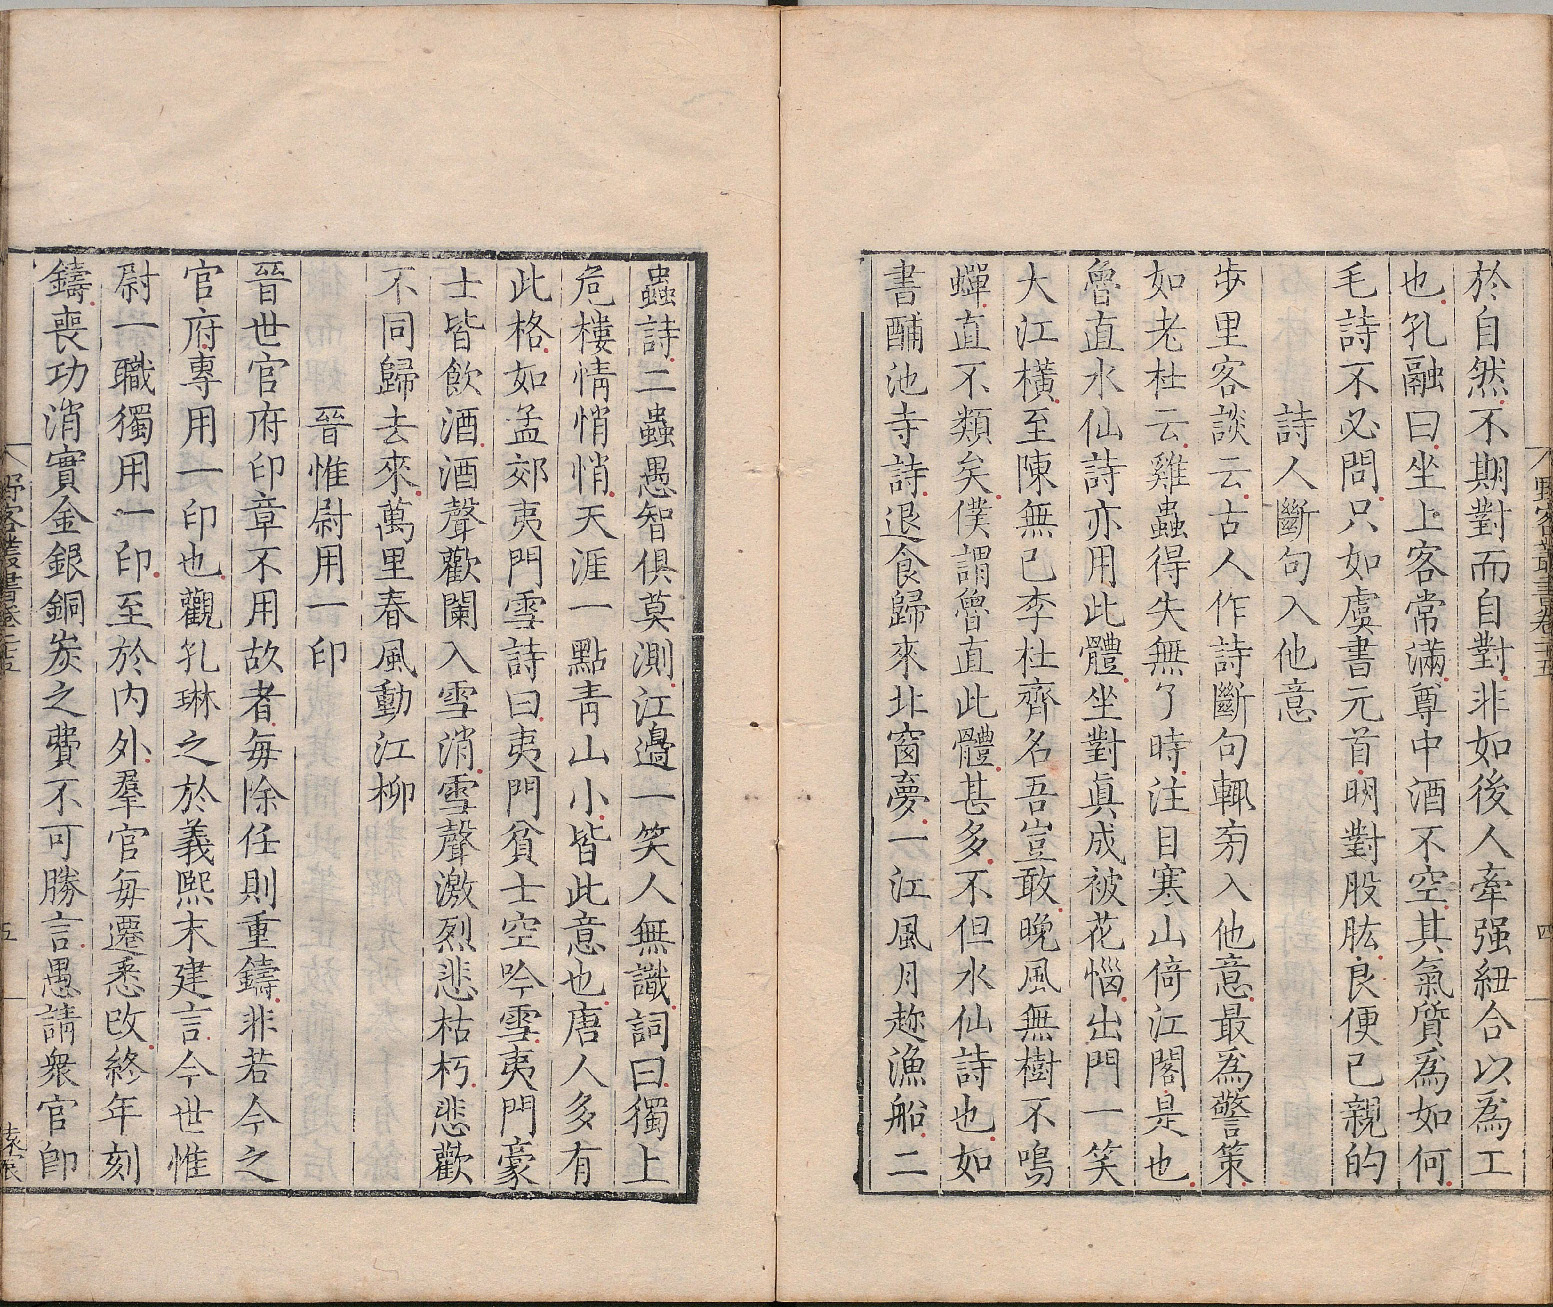 於自然不期對而自對非如後人牽强紐合以爲工
也孔融曰坐上客常滿尊中酒不空其氣質爲如何
毛詩不必問只如虞書元首明對股肱良便已親的
詩人斷句入他意
步里客談云古人作詩斷句輒旁入他意最爲警策
如老杜云雞蟲得失無了時注目寒山倚江閣是也
魯直水仙詩亦用此體坐對眞成被花惱出門一笑
大江橫至陳無已李杜齊名吾豈敢晚風無樹不鳴
蟬直不類矣僕謂魯直此體甚多不但水仙詩也如
書酺池寺詩退食歸來北窗夢一江風月趂漁船二
蟲詩二蟲愚智俱莫測江邊一笑人無識詞曰獨上
危樓情悄悄天涯一點靑山小皆此意也唐人多有
此格如孟郊夷門雪詩曰夷門貧士空吟雪夷門豪
士皆飮酒酒聲歡闌入雪消雪聲激烈悲枯朽悲歡
不同歸去來萬里春風動江柳
晉惟尉用一印
晉世官府印章不用故者每除任則重鑄非若今之
官府專用一印也觀孔琳之於義熙末建言今世惟
尉一職獨用一印至於內外羣官每遷悉改終年刻
鑄喪功消實金銀銅炭之費不可勝言愚請衆官卽
野客叢書卷二十五
五